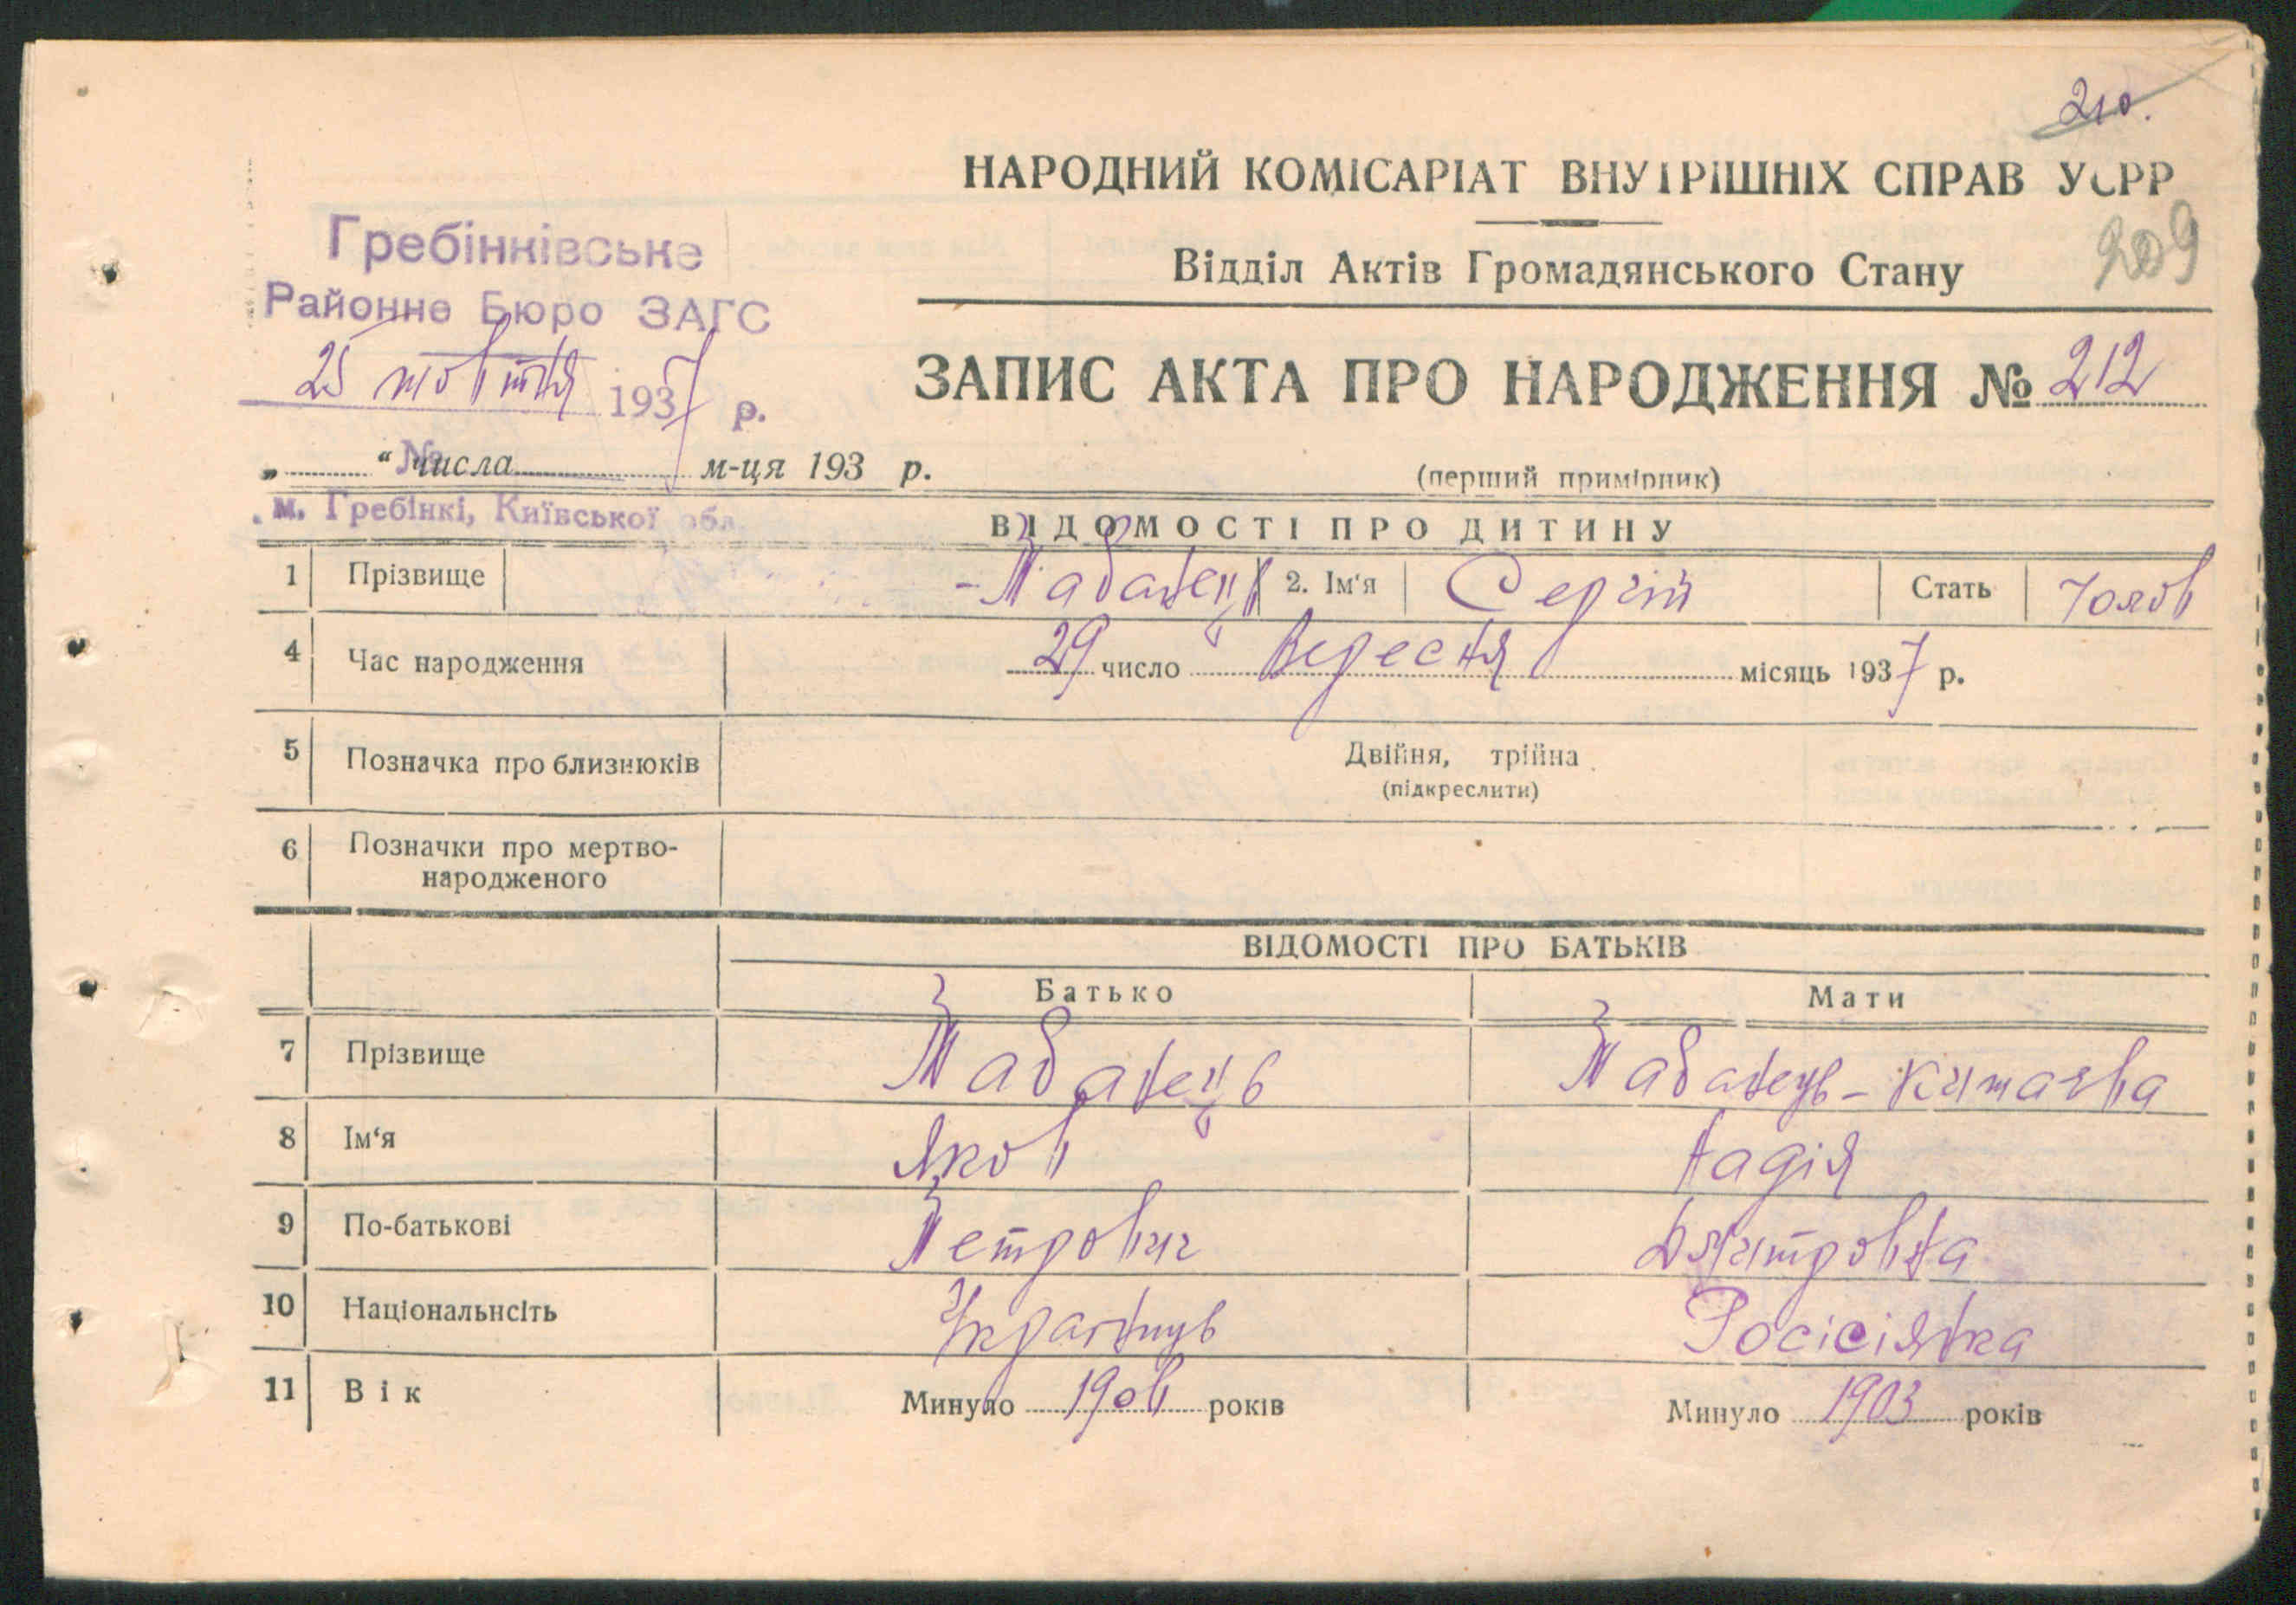 210.
НАРОДНИЙ КОМІСАРІАТ ВНУТРІШНІХ СПРАВ УСРР
209
Відділ Актів Громадянського Стану
Гребінківське
Районне Бюро ЗАГС
25 жовтня 1937 р.
ЗАПИС АКТА ПРО НАРОДЖЕННЯ № 212
№
„ “ числа м-ця 193 р.
(перший примірник)
м. Гребінкі, Київської обл.
ВІДОМОСТІ ПРО ДИТИНУ
1 Прізвище 2. Ім‘я Сергій Стать Чолов
4 Час народження 29 число Вересня місяць 1937 р.
5 Позначка про близнюків Двійня, трійна
(підкреслити)
6 Позначки про мертво-
народженого
ВІДОМОСТІ ПРО БАТЬКІВ
Батько Мати
7 Прізвище
8 Ім‘я Яков Надія
9 По-батькові Петрович Дмитровна
10 Національнсіть Українць Росісіянка
11 Вік Минуло років Минуло 1903 років